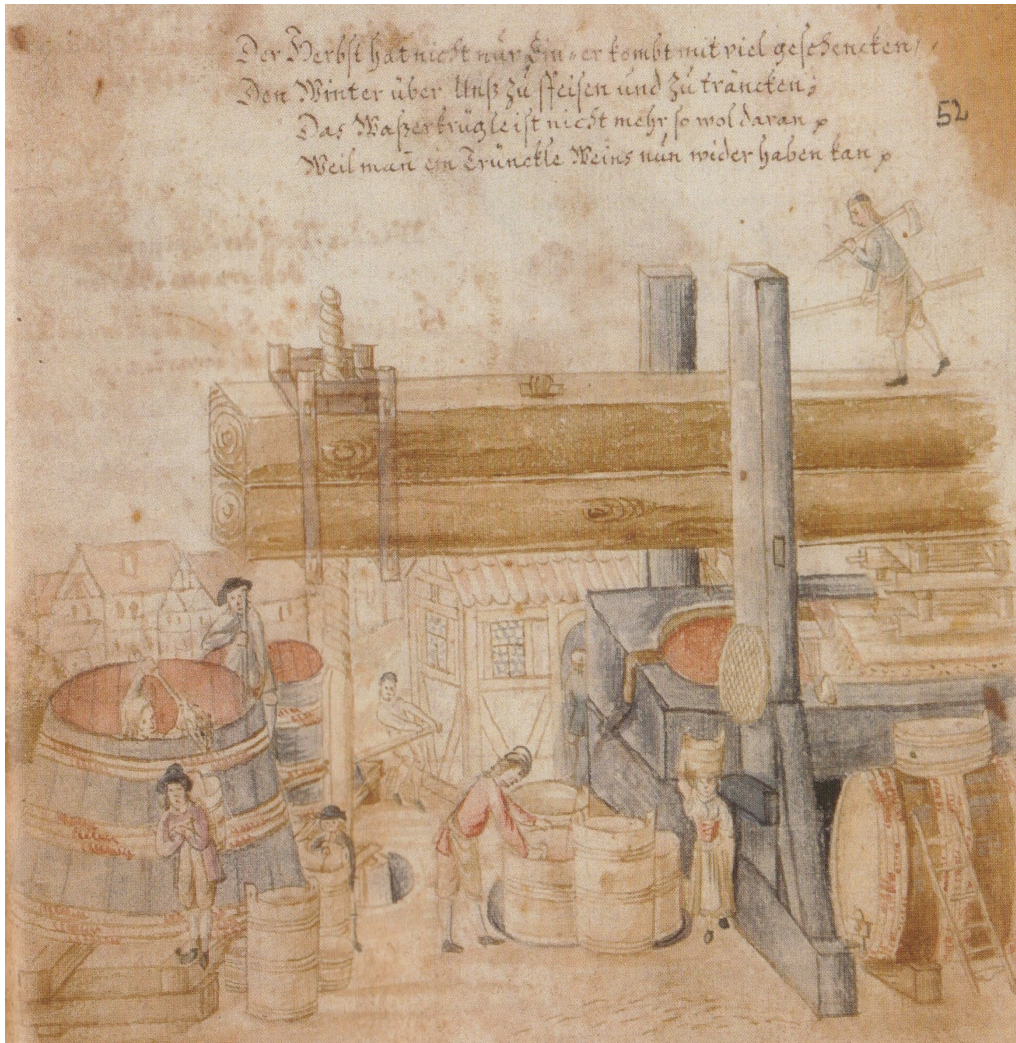 Der Herbst hat nicht nur Ein- er kombt mit viel geschencken/
Den Winter über Unß zu speisen und zu träncken;
Das Waßerkrügle ist nicht mehr so wol daran
Weil man̄ ein Trünckle Weins nun wider haben kan
52